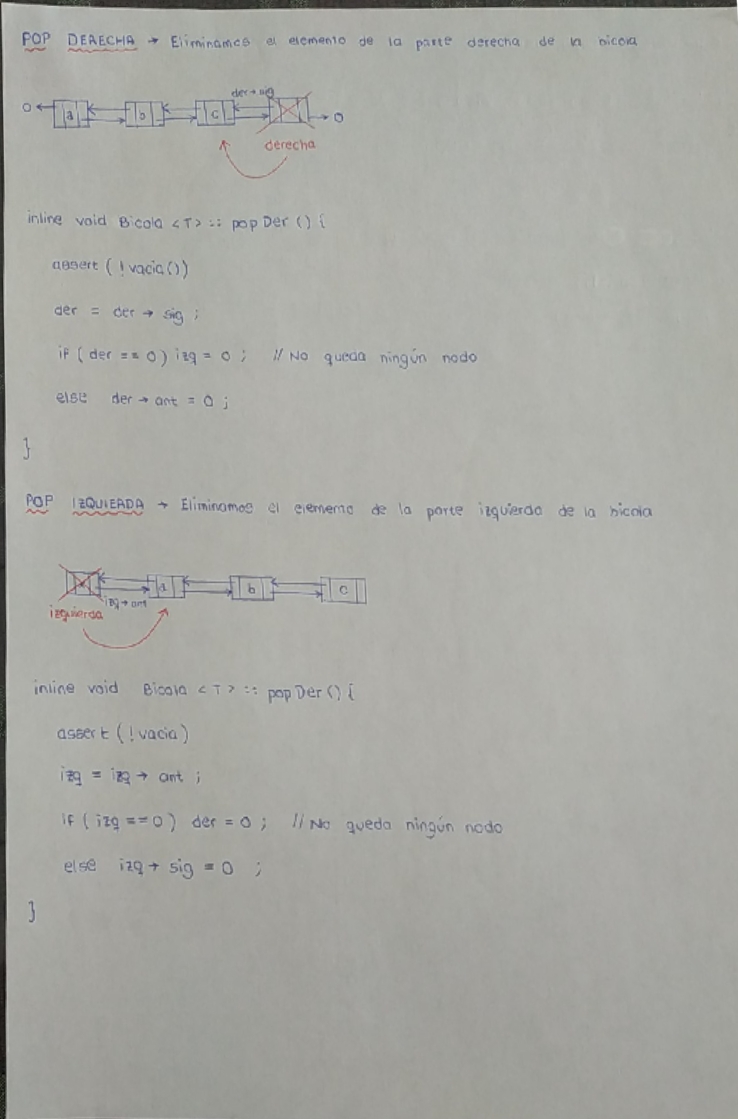 POP DERECHA → Eliminamos el elemento de la parte derecha de la bicola
der→sig
0 a b c 0
derecha
inline void Bicola <T> :: popDer () {
assert ( ! vacia())
der = der → sig ;
if ( der == 0) izq = 0 ; // No queda ningún nodo
else der → ant = 0 ;
}
POP IZQUIERDA → Eliminamos el elemento de la parte izquierda de la bicola
a b c
izq→ant
izquierda
inline void Bicola <T> :: popDer () {
assert ( ! vacia)
izq = izq → ant ;
if ( izq == 0) der = 0 ; // No queda ningún nodo
else izq → sig = 0 ;
}